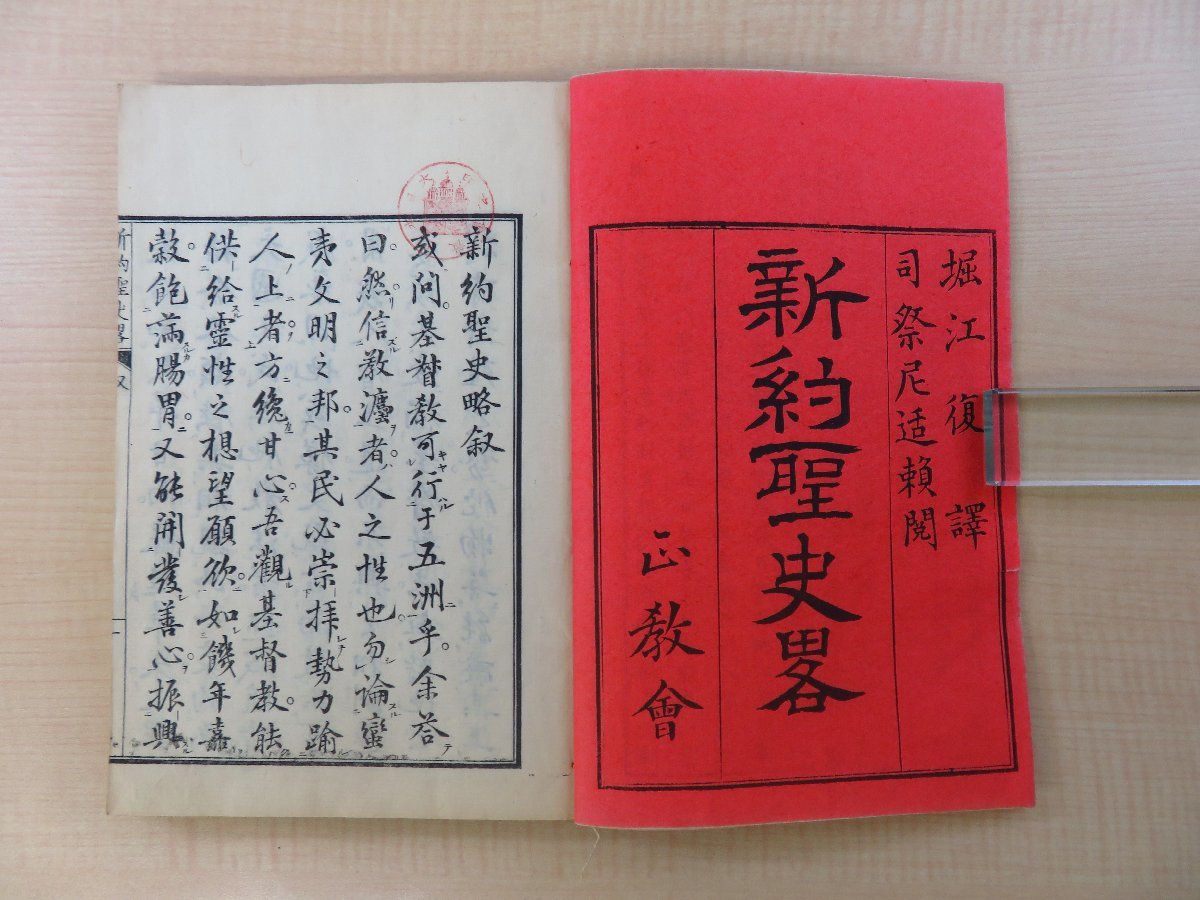 堀江復譯
司祭尼适賴閲
新約聖史畧
正教會
新約聖史略叙
或問。基督教可行于五洲乎。余答
曰。然。信教瀍者。人之性也。勿論蠻
夷文明之邦。其民必崇拝勢力踰
人上者。方纔甘心。吾觀基督教。能
供給靈性之想望願欲。如饑年嘉
穀飽滿腸胃。又能開發善心。振興
新約聖史畧 叙 一